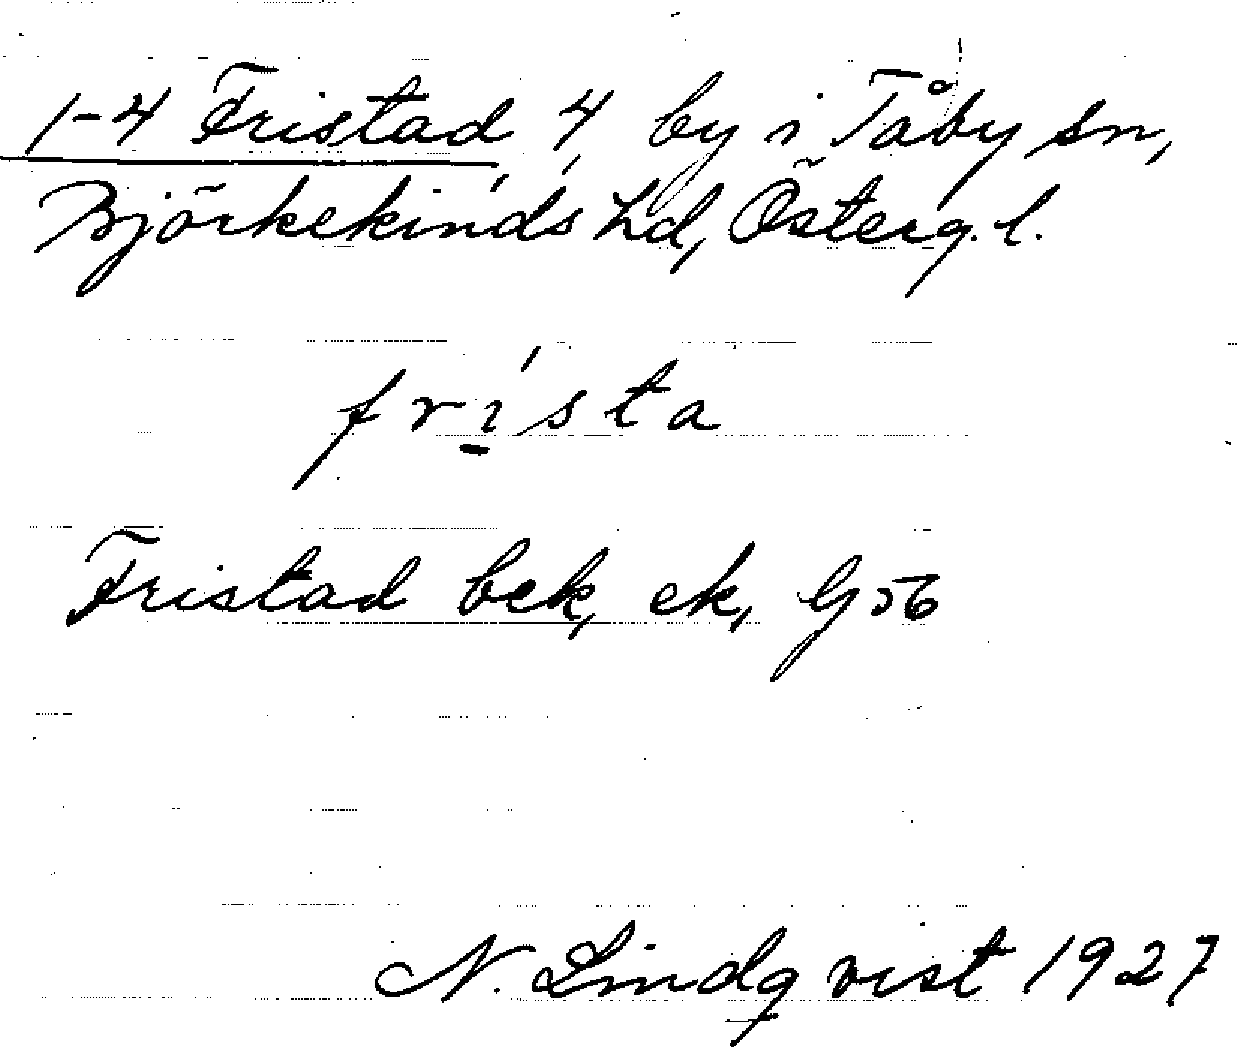 1-4 Fristad 4 by i Tåby sn,
Björkekinds hd, Österg. l.
frista
Fristad bek, ek, G56
N. Lindqvist 1927